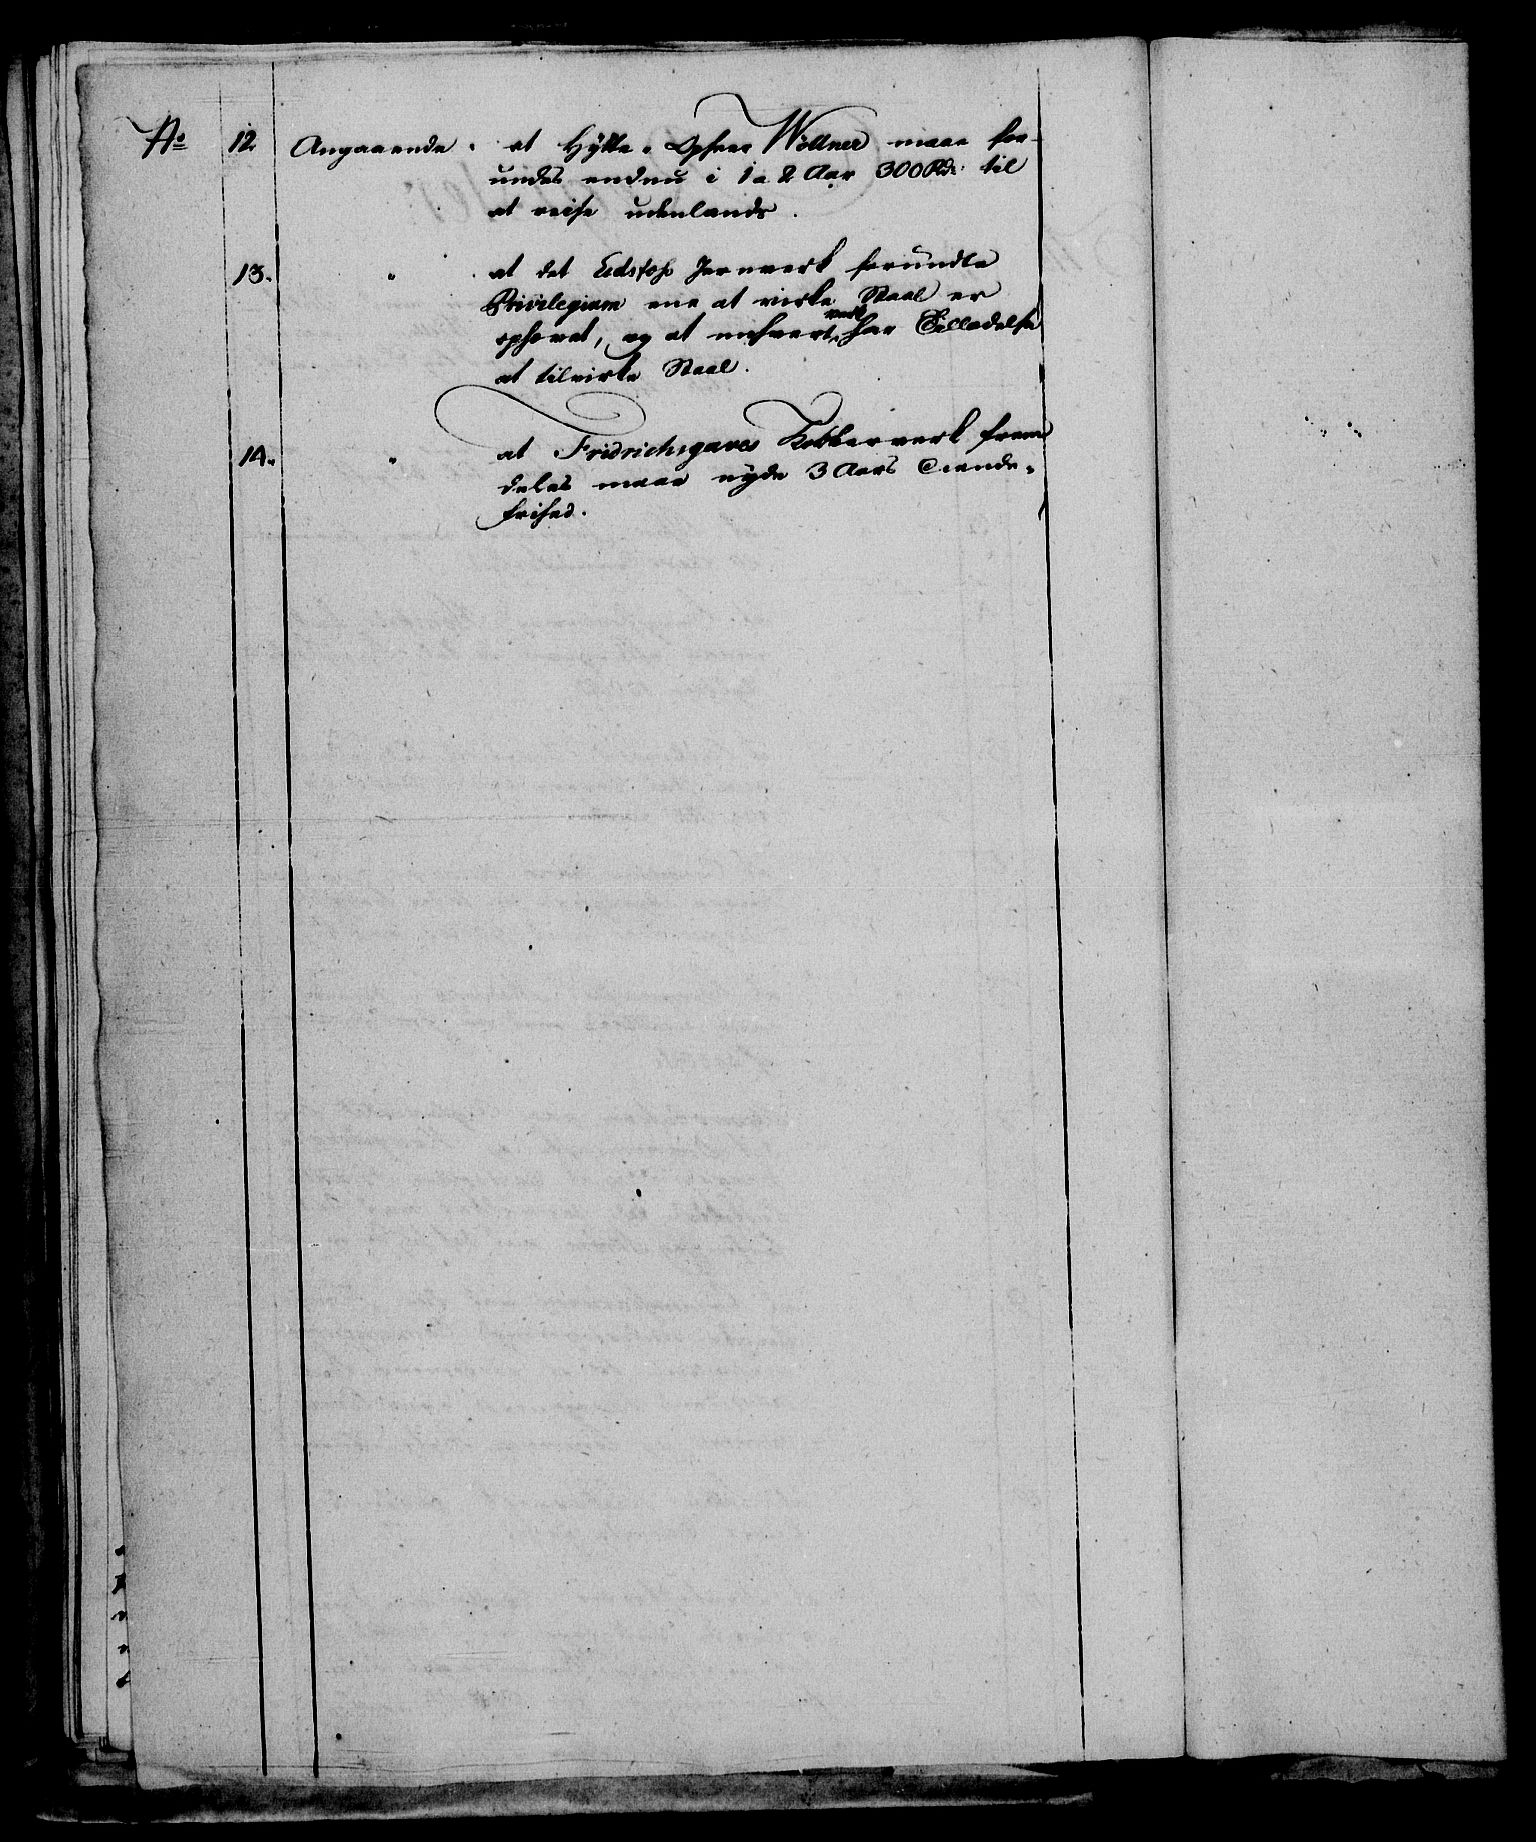 No 12. Angaaende at Hytte-Schr. Wöllner maae for-
undes endnu i 1 a 2 Aar 300 Rd. til
at reise udenlands.
13. " at det Eidsfos Jernverk forundte
Privilegium ene at virke Staal er
ophævet, og at enhvert verk har Tilladelse
at tilvirke Staal.
14. " at Fridrichsgaves Kobberverk frem
deles maae nyde 3 Aars Tiende-
frihed.